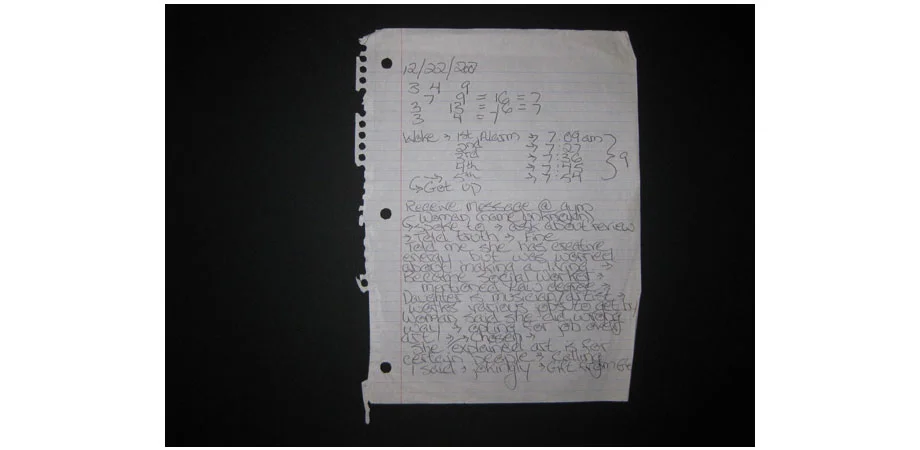 12/22/
3 4 9
7 9 = 16 = 7
3 13 = 16 = 7
3 4 = 7
Wake → 1st Alarm → 7:09am
2nd → 7:27
3rd → 7:36 } 9
4th → 7:45
5th → 7:54
↳ Get up
Receive message @ gym
Woman (name unknown)
↳ spoke to → ask about review
→ Told truth → Fine
Told me she has creative
energy but was worried
about making a living →
Became social worker →
mentioned law degree →
Daughter is musician/artist →
works various jobs to get by
Woman said she did wrong
way → opting for job over
art → → chosen →
She explained art is for
certain people → calling
I said → jokingly →